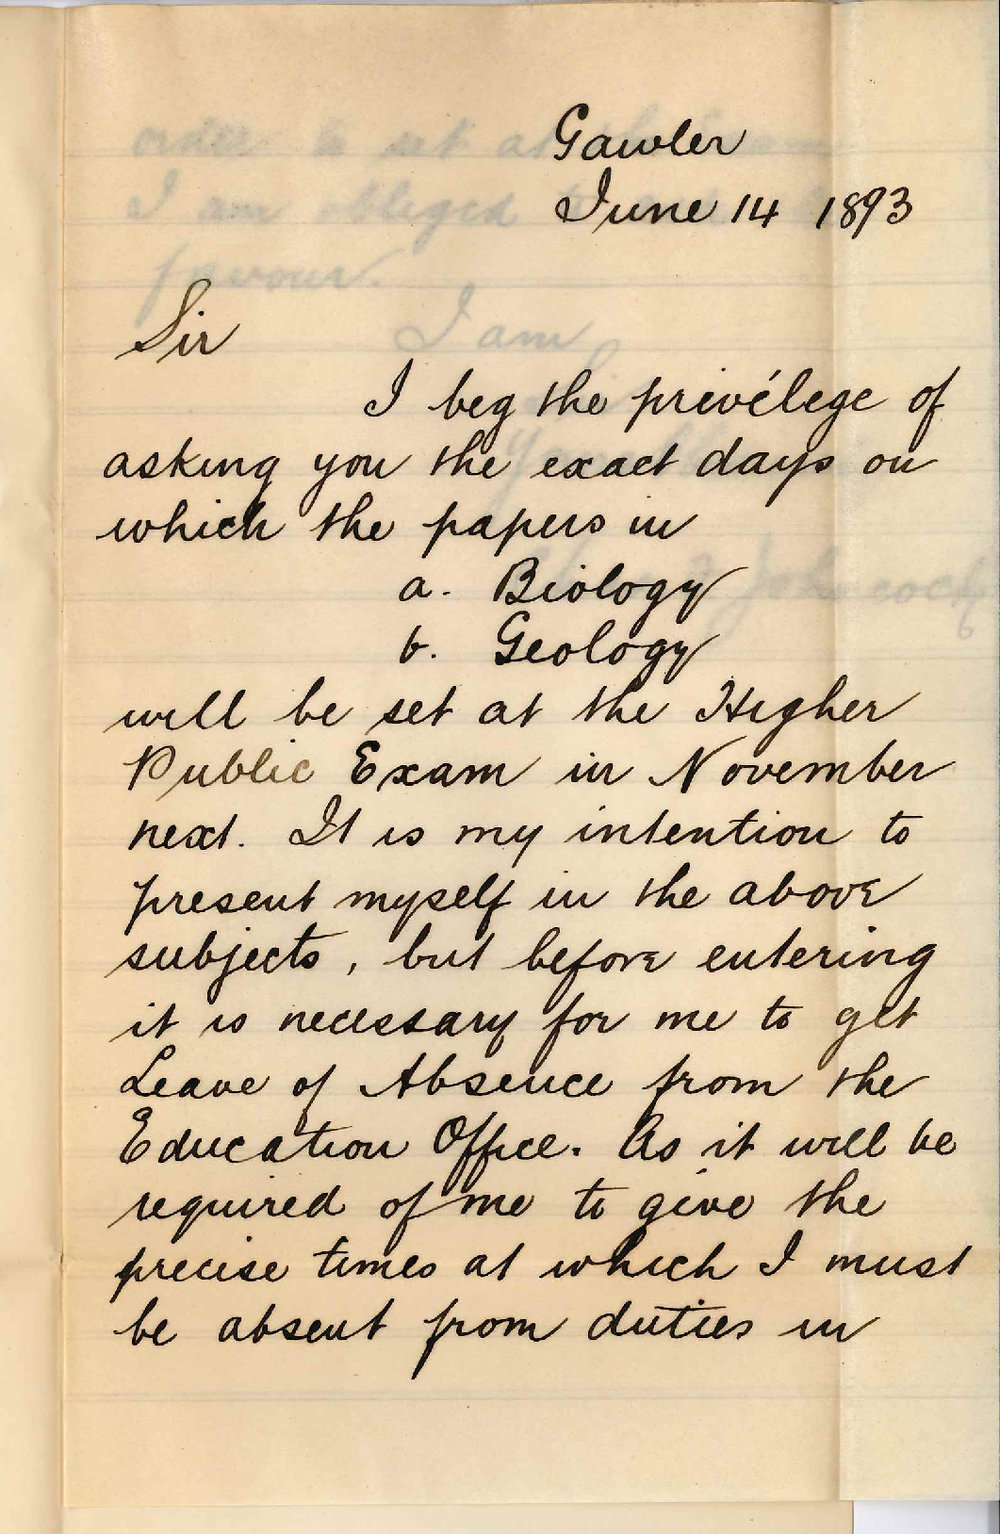 Gawler
June 14 1893
Sir
I beg the privélege of
asking you the exact days on
which the papers in
a. Biology
b. Geology
will be set at the Higher
Public Exam in November
next. It is my intention to
present myself in the above
subjects, but before entering
it is necessary for me to get
Leave of Absence from the
Education Office. As it will be
required of me to give the
precise times at which I must
be absent from duties in
order to set at
I am obliged
favour.
I am